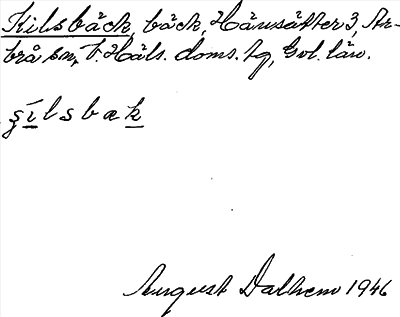 Kilsbäck, bäck, Hänsätter 3, Ar-
brå sn, V. Häls. doms. tg, Gvl. län.
s̨ i̲ l s b æ k̲
August Dalhem 1946